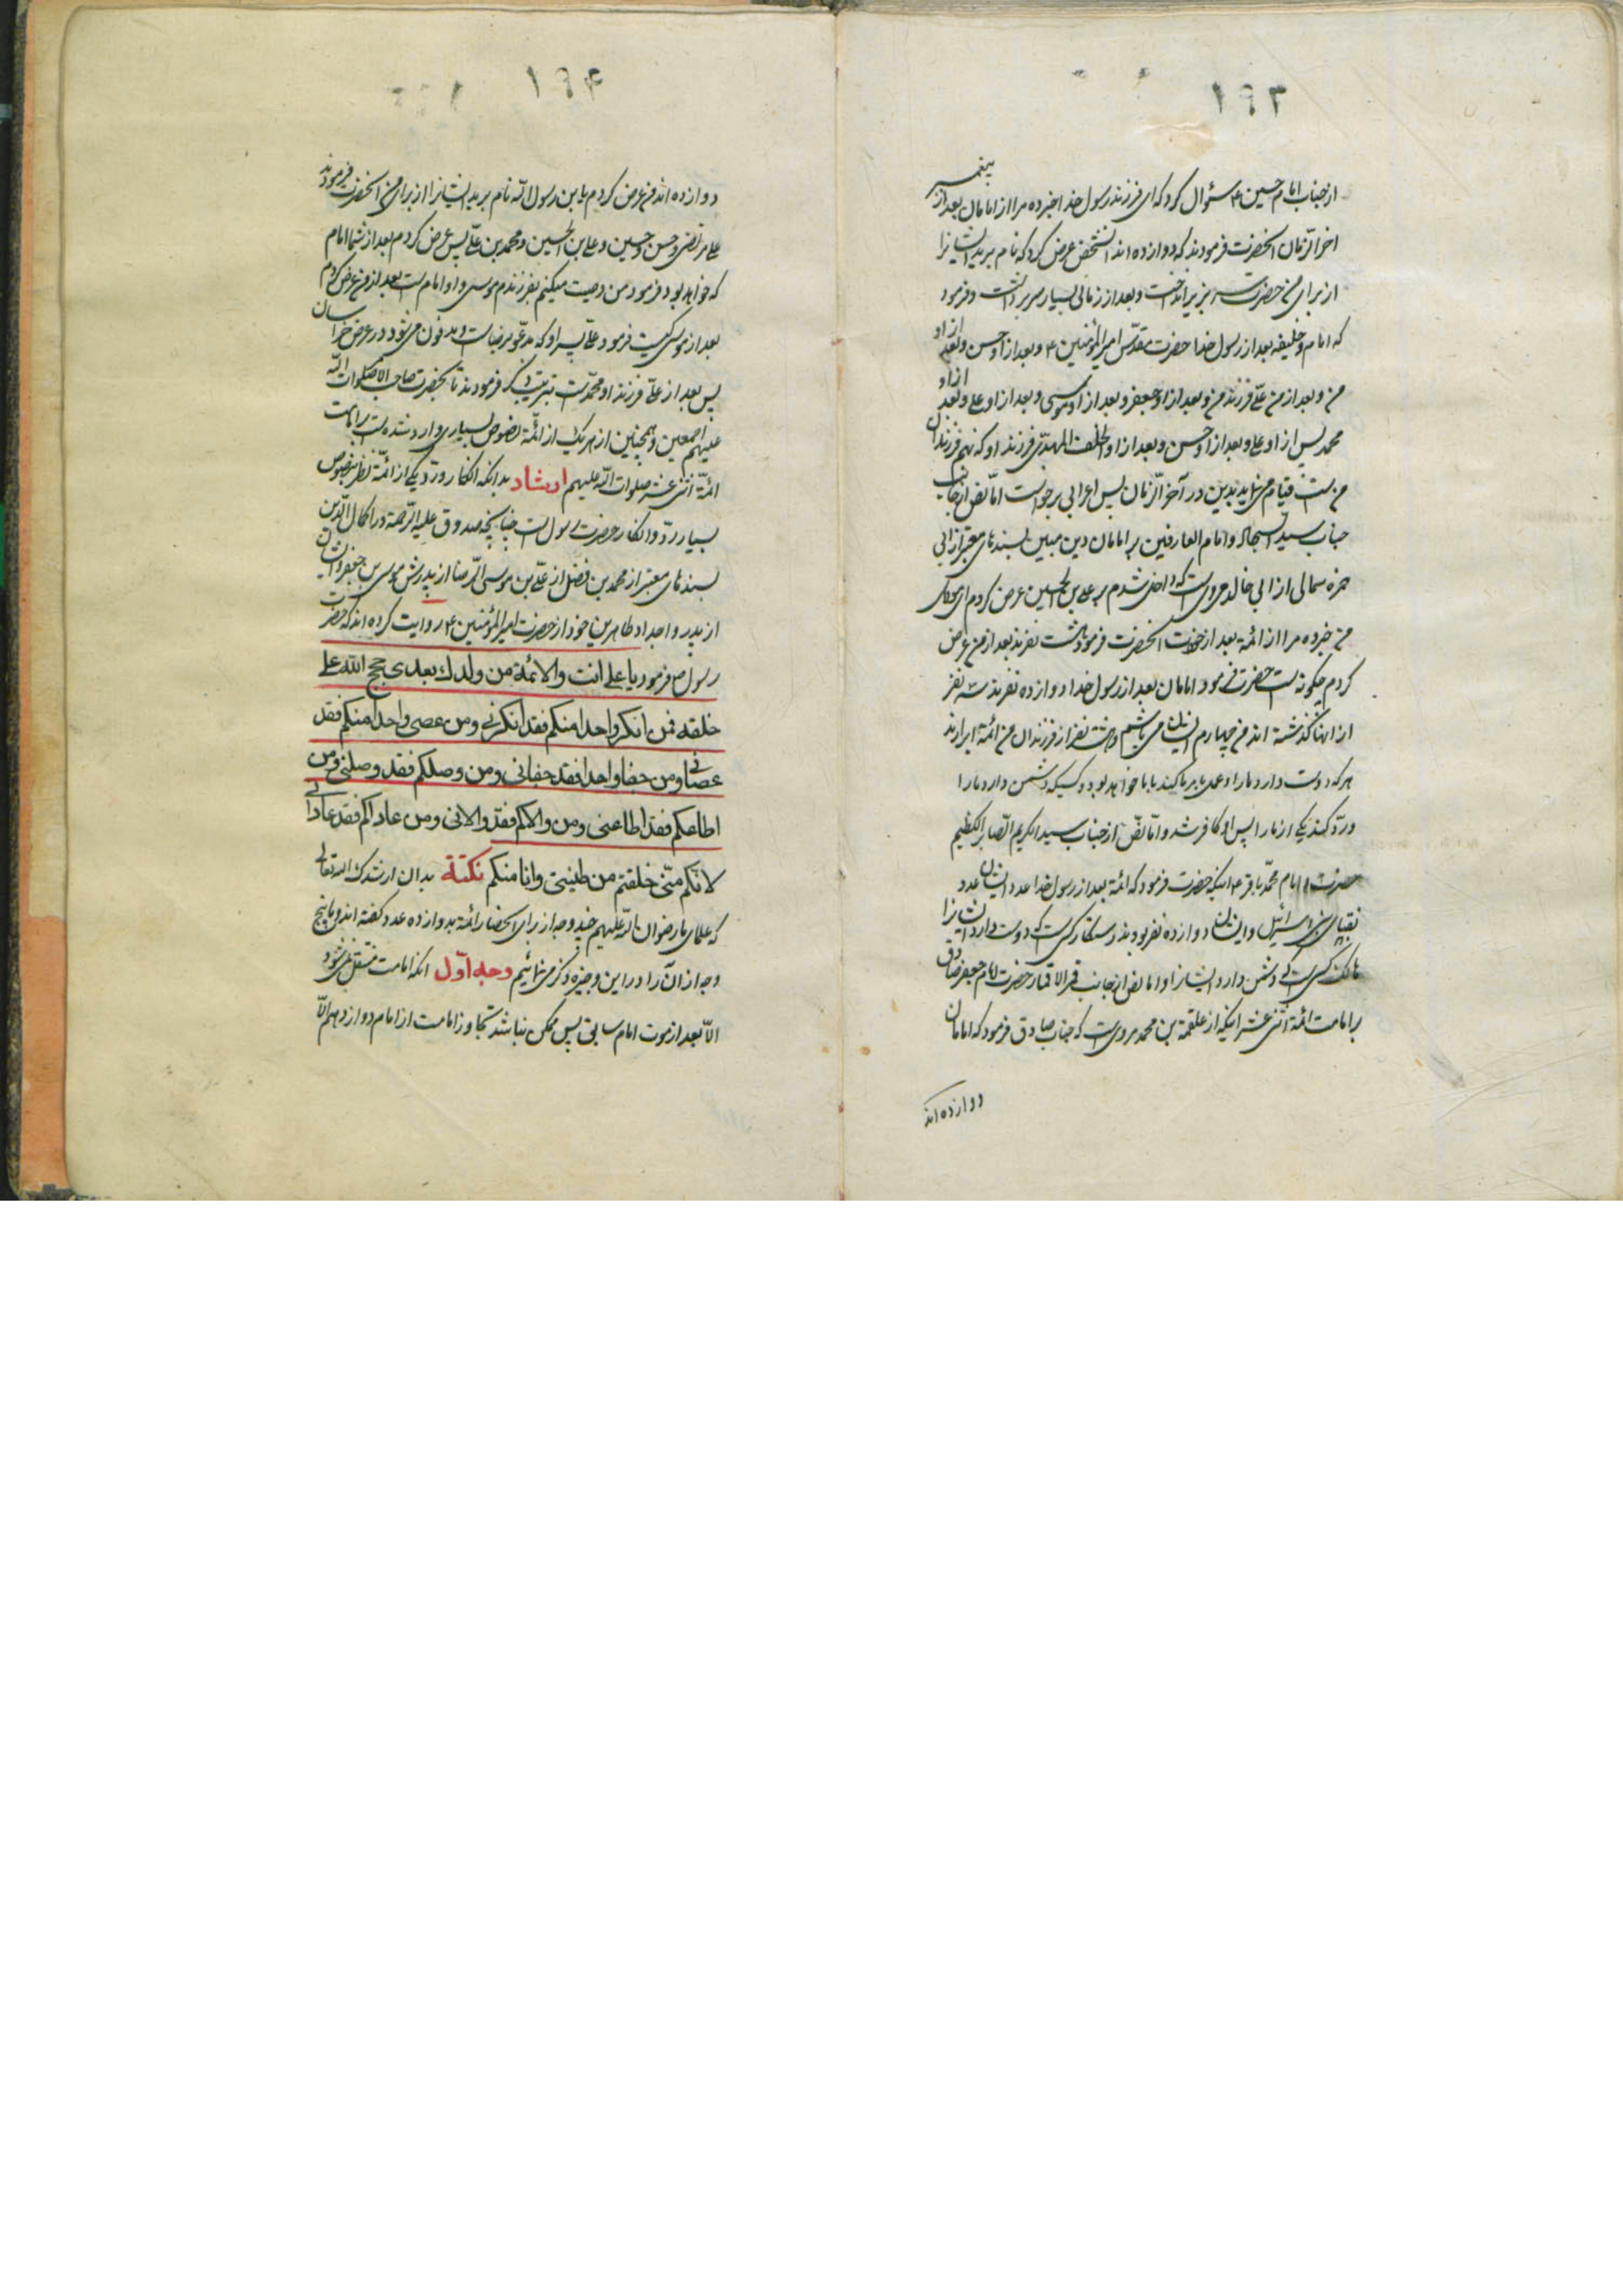 ۱۶۳
از جناب امام حسین ع سئوال کرد که ای فرزند رسول خدا خبر ده مرا از امامان بعد از پیغمبر
اخر الزمان انحضرت فرمودند که دوازده اند انشخص عرض کرد که نام برید ایشانرا
از برای من حضرت سر بزیر انداخت و بعد از زمانی بسیار سر برداشت و فرمود
که امام و خلیفه بعد از رسول خدا حضرت مقدس امیر المؤمنین ع و بعد از او حسن و بعد از او
من و بعد از من علی فرزند من و بعد از او جعفر و بعد از او موسی و بعد از او علی و بعد از او
محمد پس از او علی و بعد از او حسن و بعد از او الخلف المهدی فرزند او که نهم فرزندان
من است قیام می نماید بدین در آخر الزمان پس اعرابی برخواست اما نص از جانب
جناب سید السجاد و امام العارفین بر امامان دین مبین بسندهای معتبر از ابی
حمزه ثمالی از ابی خالد مرویست که داخل شدم بر علی بن الحسین عرض کردم ای مولای
من خبر ده مرا از ائمه بعد از خودت انحضرت فرمود هشت نفرند بعد از من عرض
کردم چگونه است حضرت فرمود امامان بعد از رسول خدا دوازده نفرند سه نفر
از انها گذشته اند من چهارم ایشان می باشم و هشت نفر از فرزندان من ائمه ابرارند
هر که دوست دارد ما را و عمل بامر ما کند با ما خواهد بود و کسیکه دشمن دارد ما را
و رد کند یکی از ما را پس او کافر شد و اما نص از جناب سید الکریم الصابر الکظیم
حضرت امام محمد باقر ع اینکه حضرت فرمود که ائمه بعد از رسول خدا عدد ایشان عدد
نقبای بنی اسرائیل و ایشان دوازده نفر بودند رستکار کسی است که دوست دارد ایشانرا
هالک کسی است که دشمن دارد ایشانرا و اما نص از جانب قمر الاقمار حضرت امام جعفر صادق
بر امامت ائمه اثنی عشر اینکه از علقمة بن محمد مرویست که جناب صادق فرمود که امامان
دوازده اند
۱۶۴
دوازده اند من عرض کردم یابن رسول الله نام برید ایشانرا از برای من انحضرت فرمودند
علی مرتضی و حسن و حسین و علی بن الحسین و محمد بن علی پس عرض کردم بعد از شما امام
که خواهد بود فرمود من وصیت میکنم بفرزندم موسی و او امام است بعد از من عرض کردم
بعد از موسی کیست فرمود علی پسر او که مدعو برضاست و مدفون می شود در عرض خراسان
پس بعد از علی فرزند او محمد است بترتیب ذکر فرمودند تا بحضرت صاحب الامر صلوات الله
علیهم اجمعین و همچنین از هر یک از ائمه نصوص بسیاری وارد شده است بر امامت
ائمه اثنی عشر صلوات الله علیهم ارشاد بدانکه انکار و رد یکی از ائمه نظر بنصوص
بسیار رد و انکار حضرت رسول است چنانچه صدوق علیه الرحمة در اکمال الدین
بسندهای معتبر از محمد بن فضل از علی بن موسی الرضا از پدرش موسی بن جعفر و ایشان
از پدر و اجداد طاهرین خود از حضرت امیر المؤمنین ع روایت کرده اند که حضرت
رسول ص فرمود یا علی انت والائمة من ولدك بعدی حجج الله علی
خلقه فمن انکر واحدا منکم فقد انکرنی ومن عصی واحدا منکم فقد
عصانی ومن جفا واحدا فقد جفانی ومن وصلکم فقد وصلنی ومن
اطاعکم فقد اطاعنی ومن والاکم فقد والانی ومن عاداکم فقد عادانی
لانکم منی خلقتم من طینتی وانا منکم نکتة بدان ارشدك الله تعالی
که علمای ما رضوان الله علیهم چند وجه از برای انحصار ائمه بدوازده عدد گفته اند و ما پنج
وجه از ان را در این وجیزه ذکر می نمائیم وجه اول انکه امامت منتقل نمی شود
الا بعد از موت امام سابق پس ممکن نباشد تجاوز امامت از امام دوازدهم الا